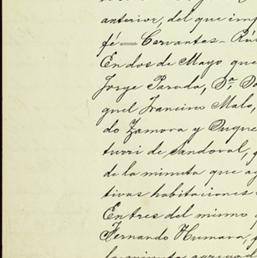 anterior, del que imp
fé — Cervantes — Rú
En dos de Mayo que
Jorge Parada, Dn. D
quel Francisco Malo,
do Zamora y Duque
turri de Sandoval, q
de la minuta que ag
tivas habitaciones
En tres del mismo
Fernando Humara, q